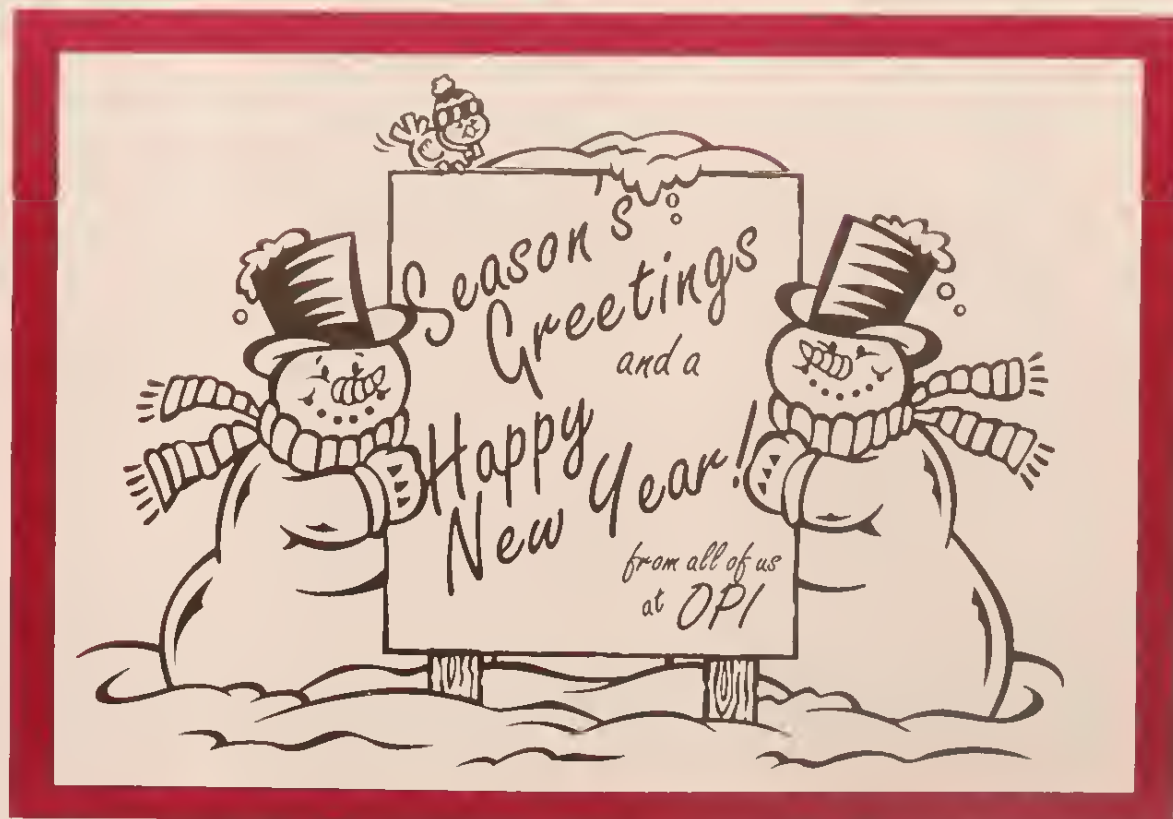 Season's
Greetings
and a
Happy
New Year!
from all of us
at OPI